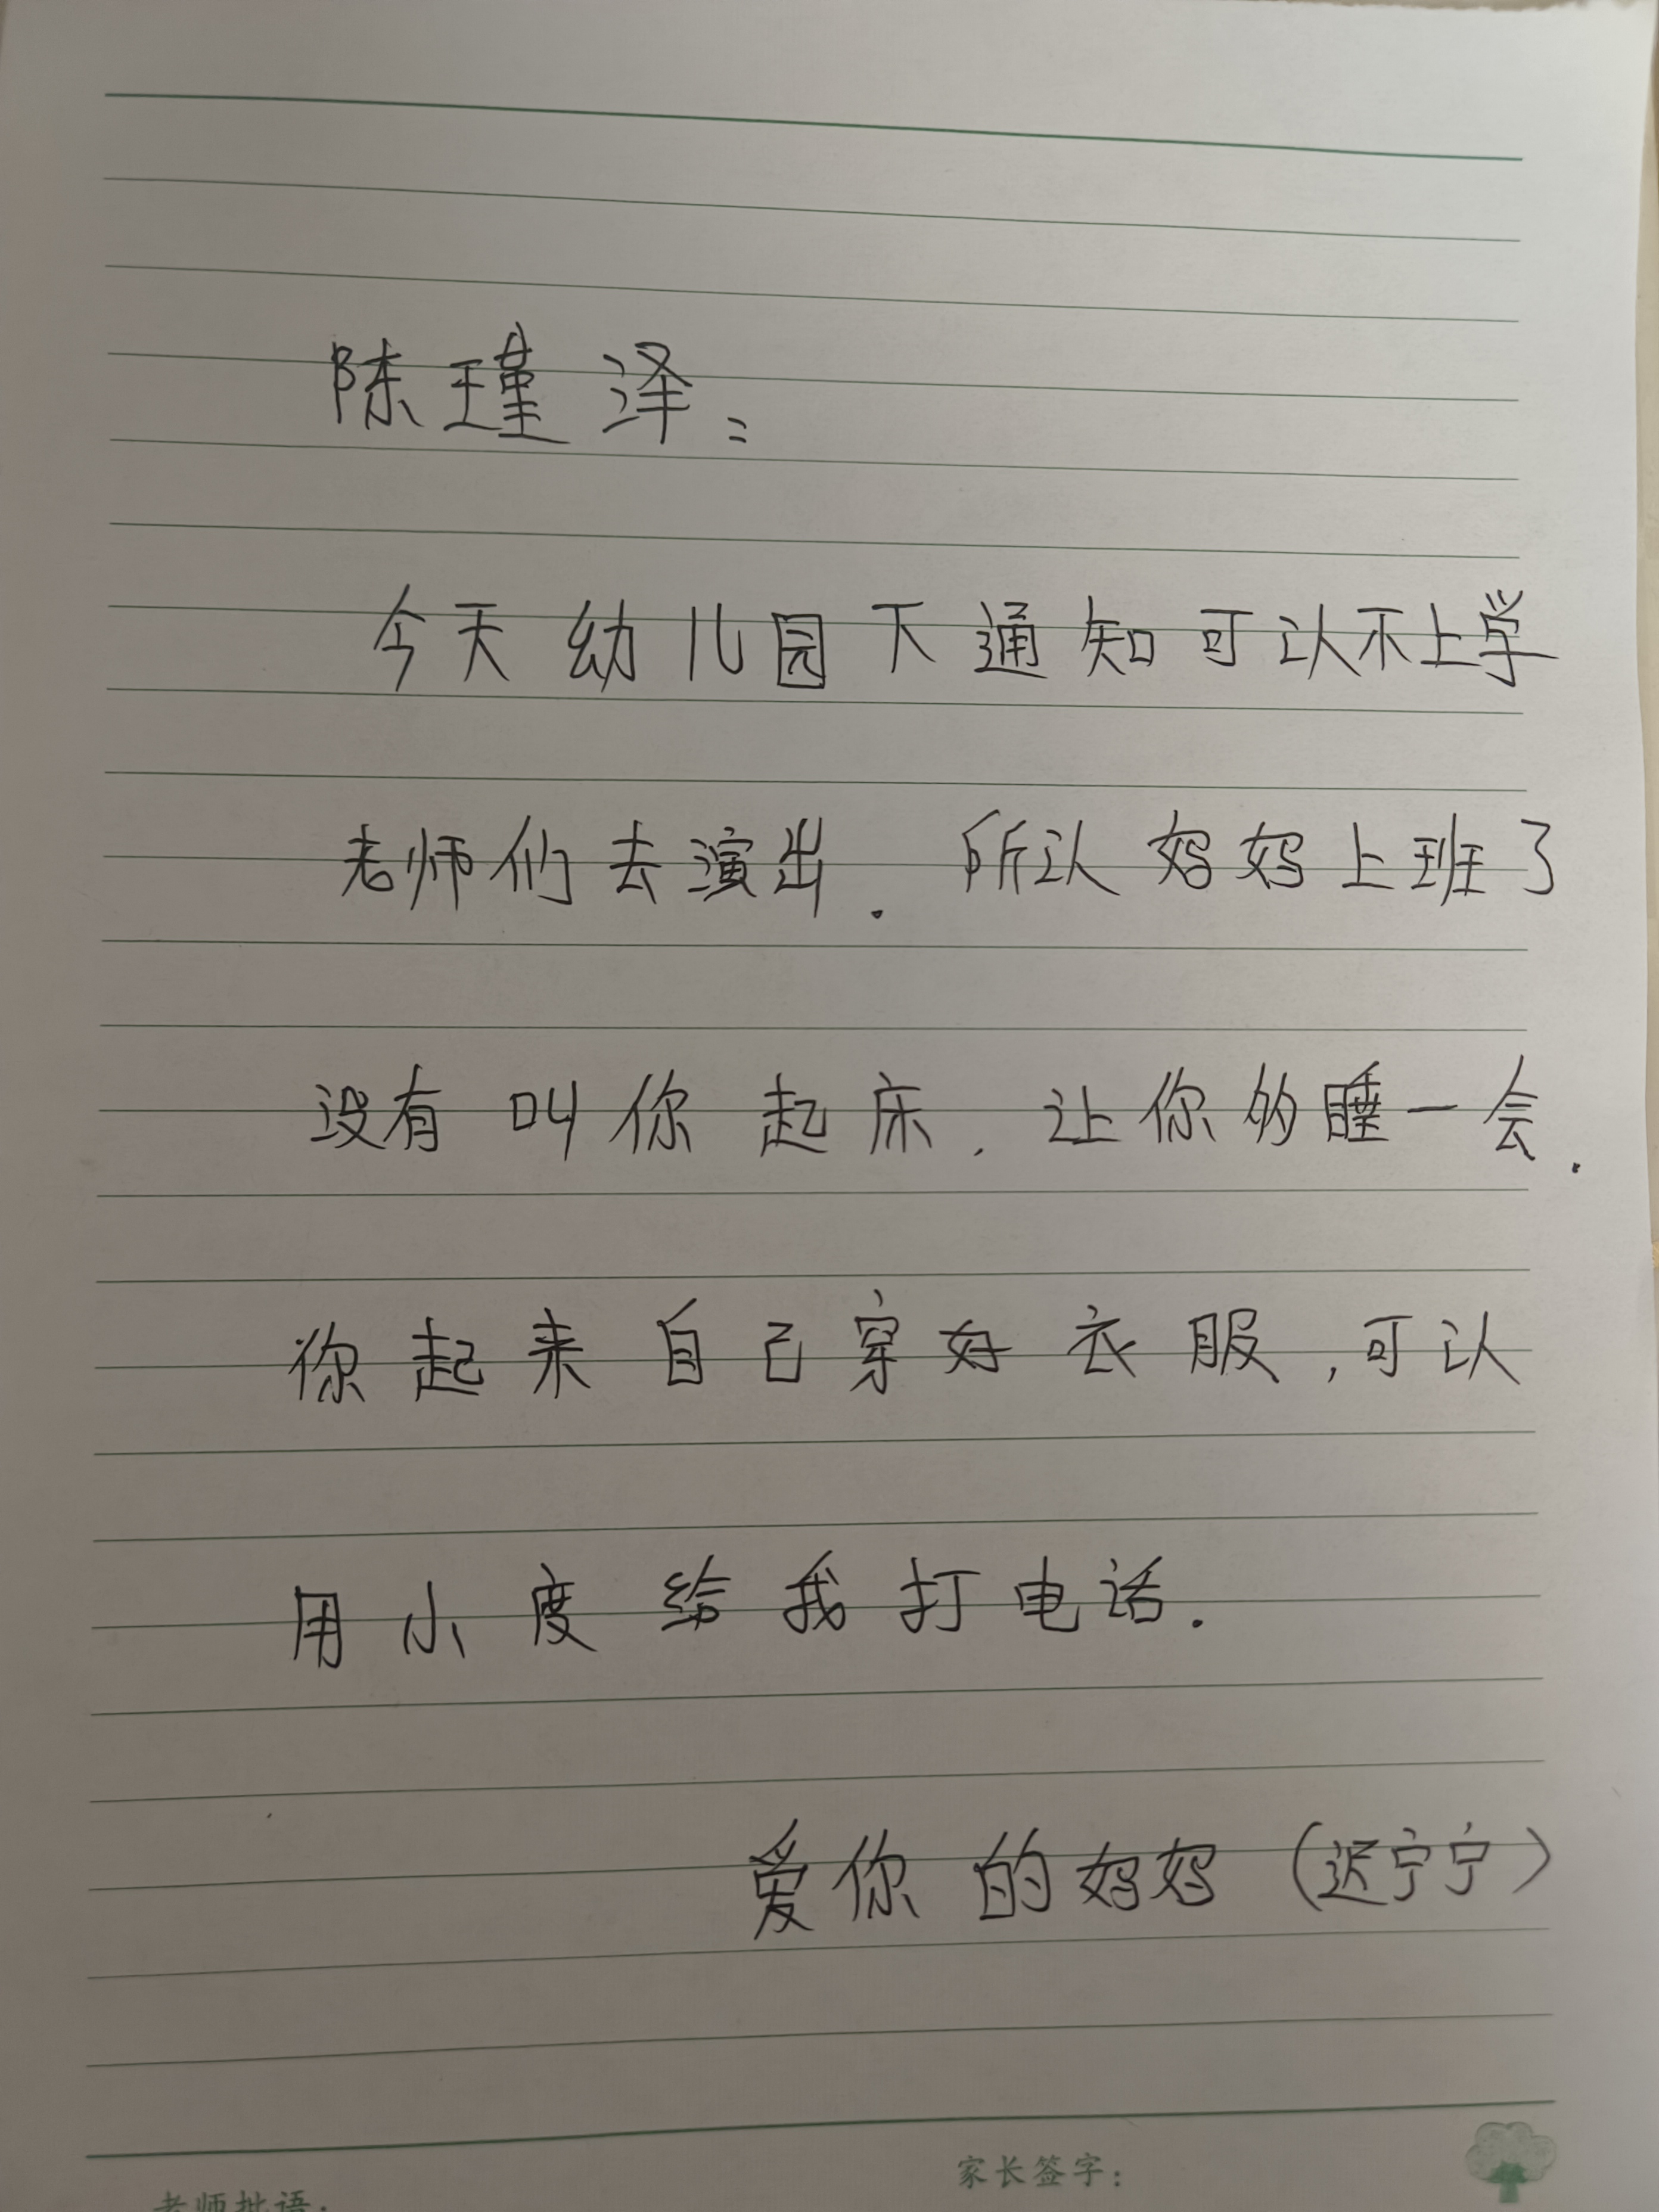 陈瑾泽：
今天幼儿园下通知可以不上学
老师们去演出．所以妈妈上班了
没有叫你起床，让你的睡一会．
你起来自己穿好衣服，可以
用小度给我打电话．
爱你的妈妈（迟宁宁）
家长签字：
老师批语：